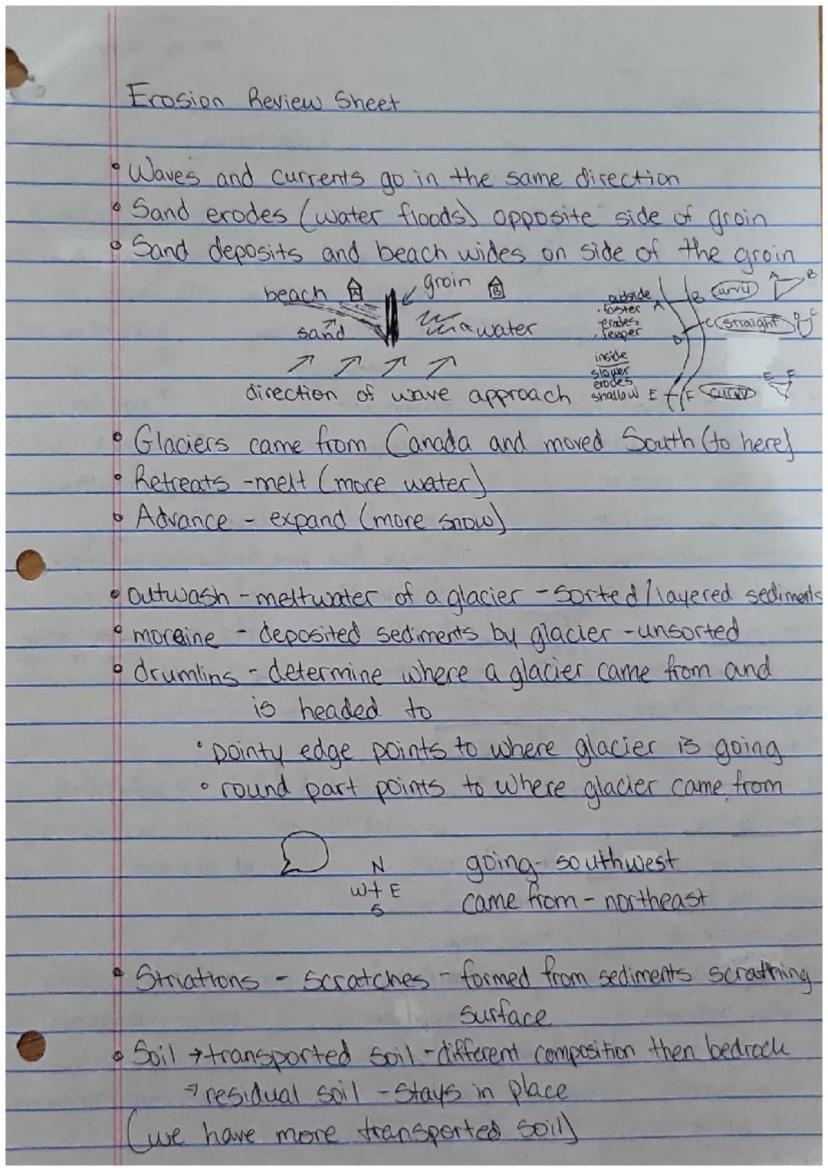 Erosion Review Sheet
• Waves and currents go in the same direction
• Sand erodes (water floods) opposite side of groin
• Sand deposits and beach wides on side of the groin
beach
groin
sand
water
direction of wave approach
outside
• faster
erodes
• deeper
inside
slower
erodes
shallow
A
B
curvy
A
B
C
straight
D
C
D
E
F
curvy
E
F
• Glaciers came from Canada and moved South (to here)
• Retreats - melt (more water)
• Advance - expand (more snow)
• outwash - meltwater of a glacier - sorted/layered sediments
• moraine - deposited sediments by glacier - unsorted
• drumlins - determine where a glacier came from and
is headed to
• pointy edge points to where glacier is going
• round part points to where glacier came from
N
W+E
S
going - southwest
came from - northeast
• Striations - scratches - formed from sediments scrathing
surface
• Soil → transported soil - different composition then bedrock
→ residual soil - stays in place
(we have more transported soil)